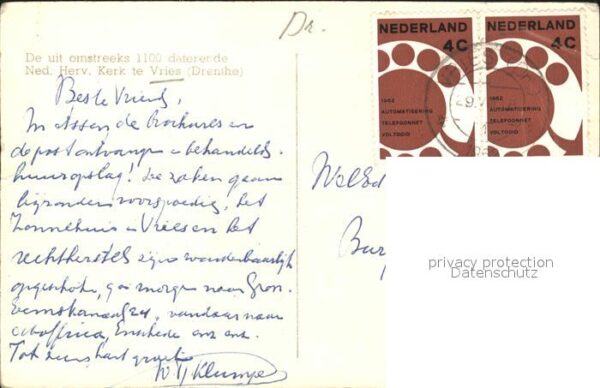 Dr.
De uit omstreeks 1100 daterende
Ned. Herv. Kerk te Vries (Drenthe)
NEDERLAND
4C
1962
AUTOMATISERING
TELEFOONNET
VOLTOOID
NEDERLAND
4C
1962
AUTOMATISERING
TELEFOONNET
VOLTOOID
Beste Vriend,
In Assen de brochures en
de post ontvangen en behandeld.
huuropslag! De zaken gaan
bijzonder voorspoedig, het
Zonnehuis in Vries en het
rechtherstel zijn wonderbaarlijk
opgeschoten, ga morgen naar Gron.
Eemskanaal 24, vandaar naar
Enschede enz enz.
Tot ziens hart
privacy protection
Datenschutz